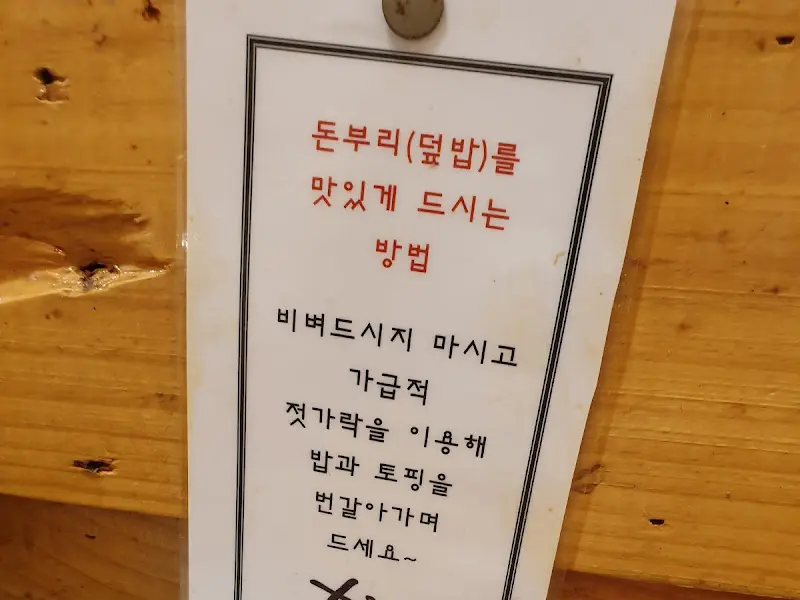 돈부리(덮밥)를
맛있게 드시는
방법
비벼드시지 마시고
가급적
젓가락을 이용해
밥과 토핑을
번갈아가며
드세요~